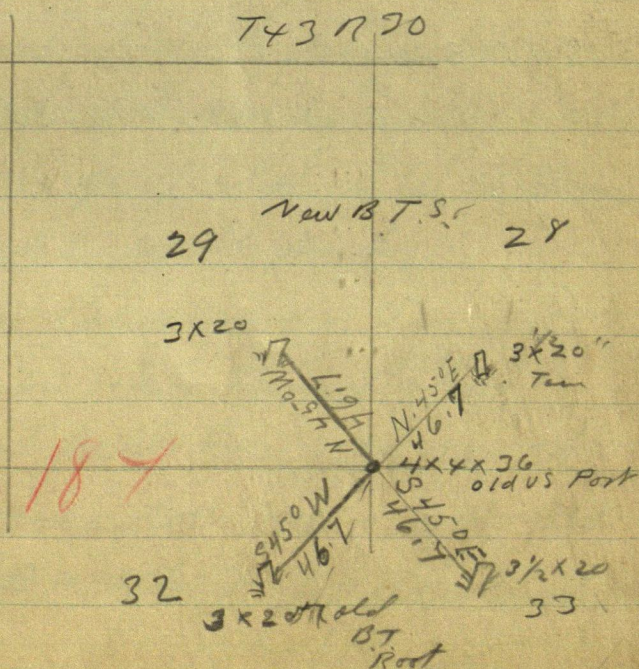 T43 R30
New B.T.S.
29
28
3X20
3 1/2 X 20"
Tam
N 45° W
46.7
N.45°E
46.7
4X4X36
old US Post
S45°W
46.7
S45°E
46.7
3 1/2 X 20
32
33
3X20
old
B.T.
Root